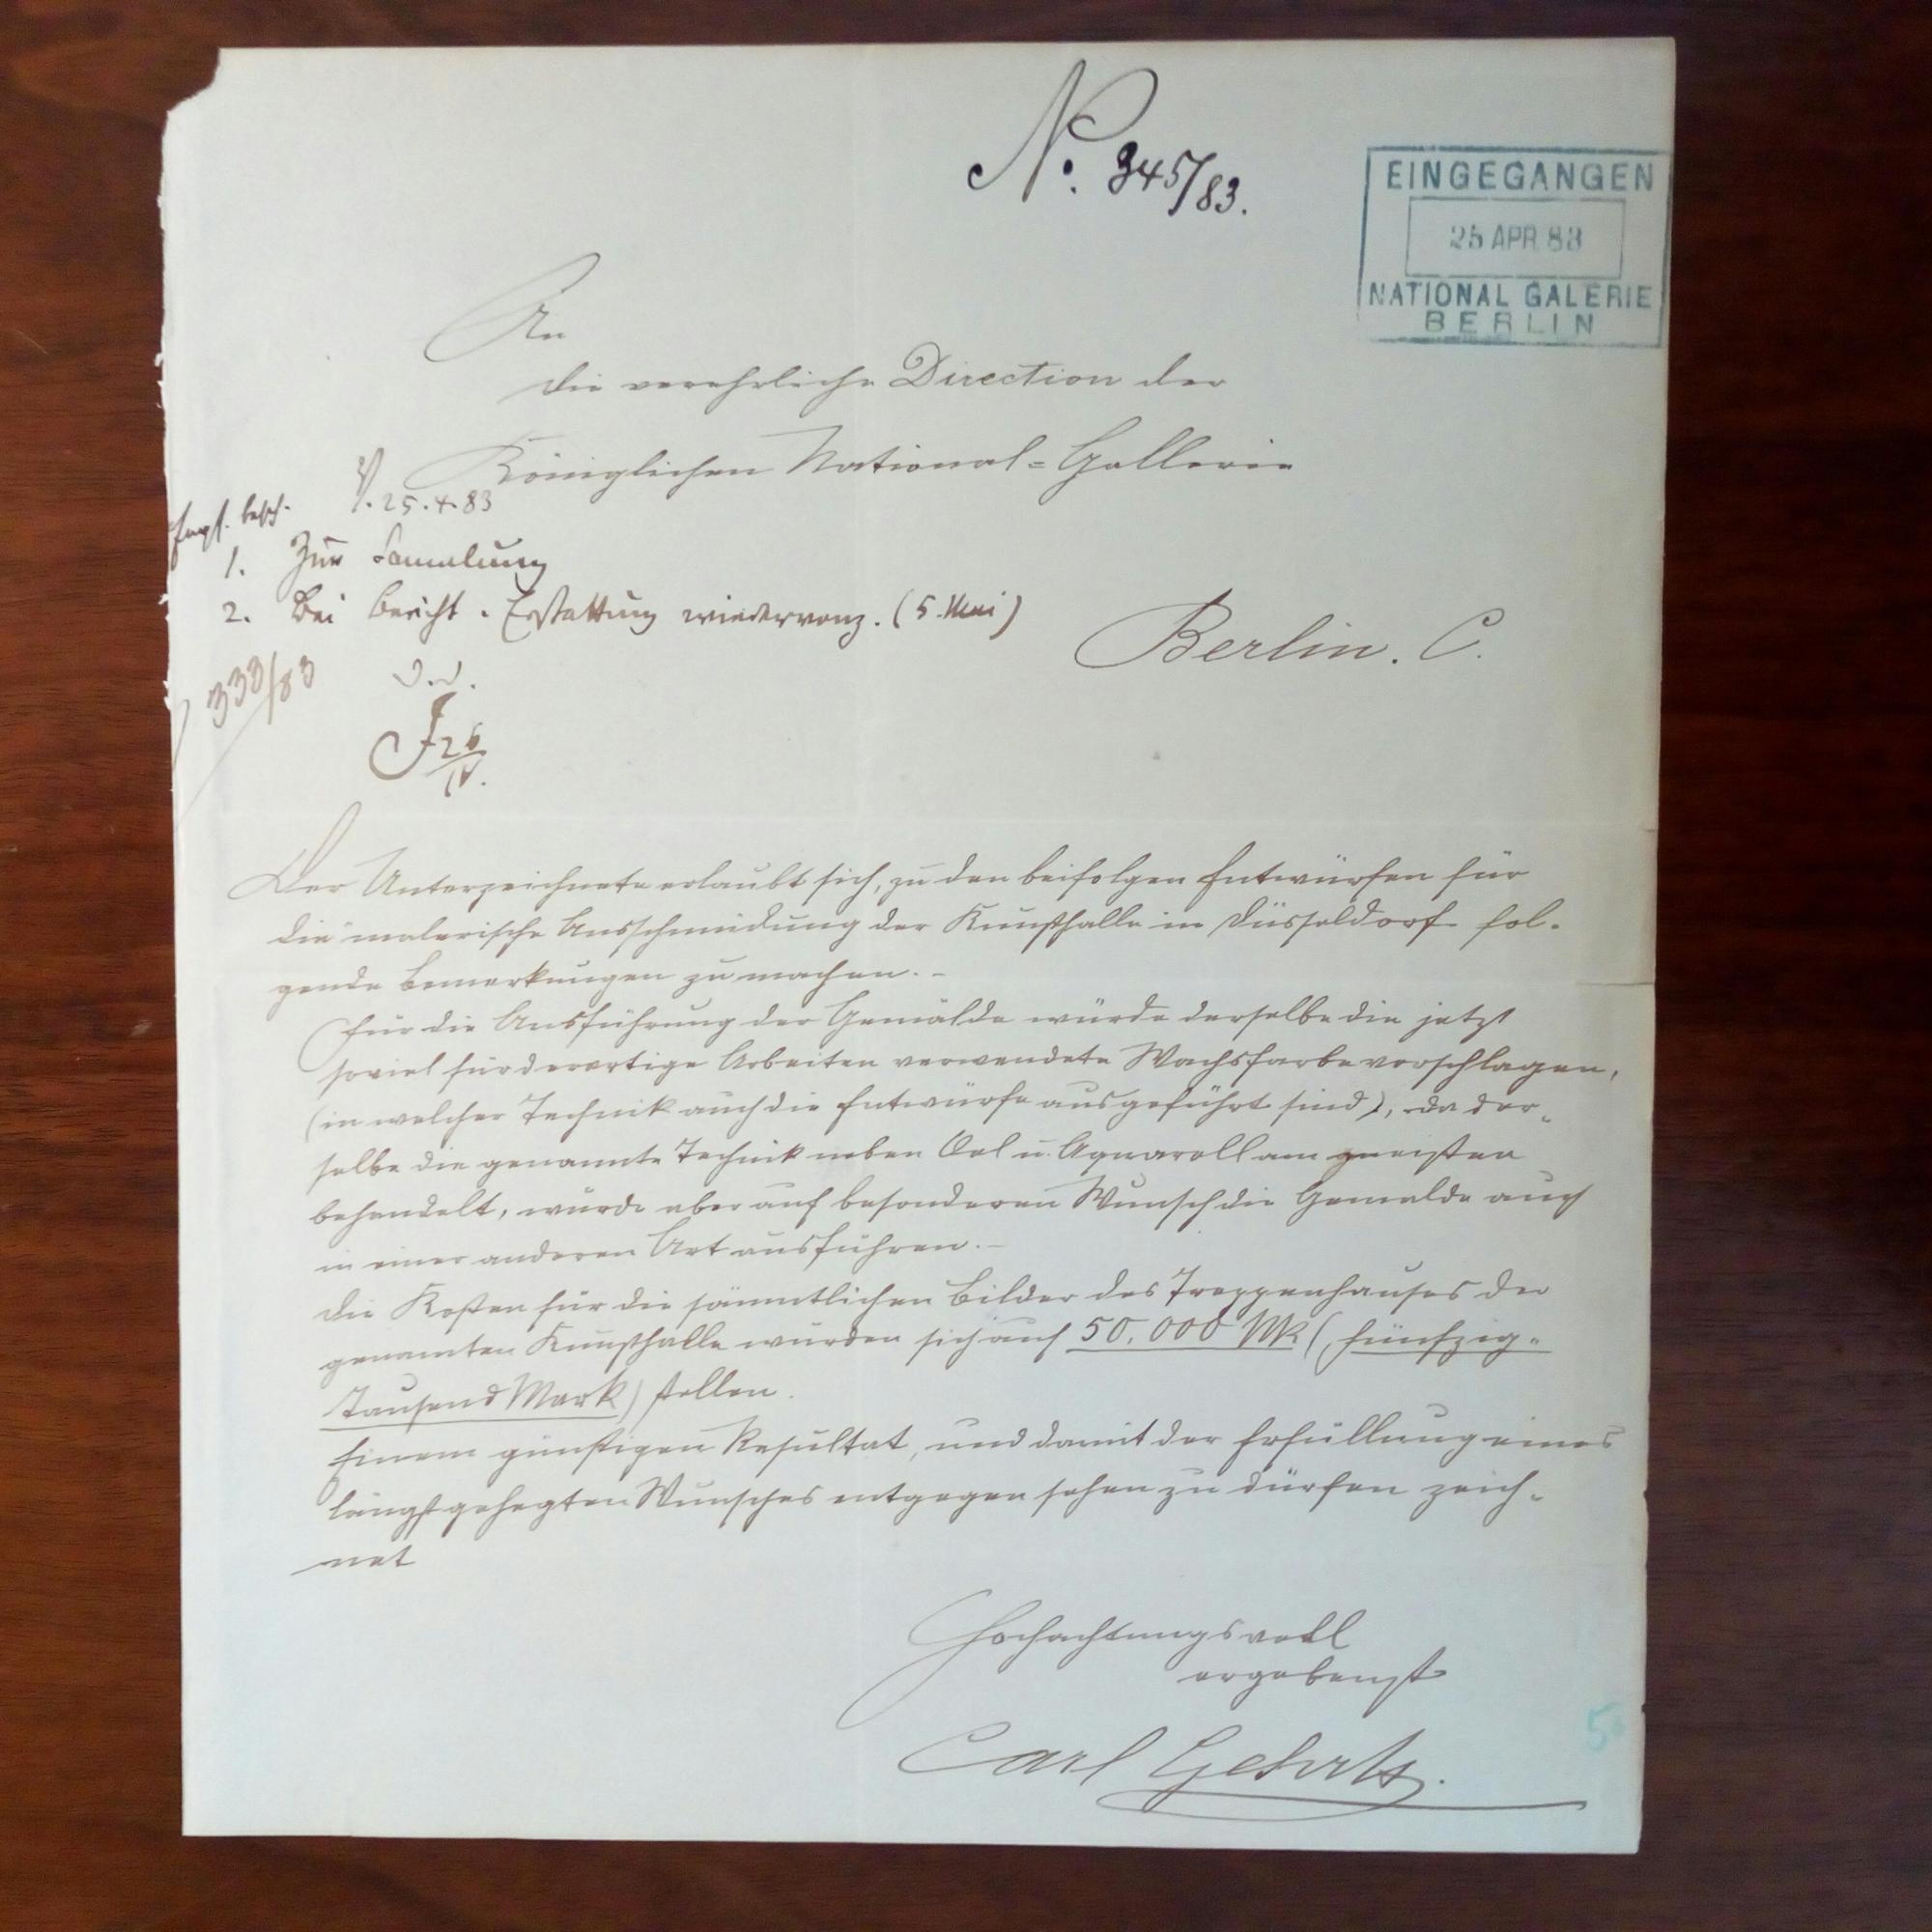 No. 345/83.
EINGEGANGEN
25 APR. 83
NATIONAL GALERIE
BERLIN
An
die verehrliche Direction der
Königlichen National=Gallerie
Empf. besch.
25.4.83
1. Zur Samlung
2. Bei Bericht-Erstattung wiedervorz. (5. Mai)
Berlin. C.
333/83
J 26/IV.
Der Unterzeichnete erlaubt sich, zu den beifolgen Entwürfen für
die malerische Ausschmückung der Kunsthalle in Düsseldorf fol-
gende Bemerkungen zu machen. –
Für die Ausführung der Gemälde würde derselbe die jetzt
soviel für derartige Arbeiten verwendete Wachsfarbe vorschlagen,
(in welcher Technik auch die Entwürfe ausgeführt sind), da der-
selbe die genannte Technik neben Oel u. Aquarell am meisten
behandelt, würde aber auf besonderen Wunsch die Gemälde auch
in einer anderen Art ausführen. –
Die Kosten für die sämmtlichen Bilder des Treppenhauses der
genannten Kunsthalle würden sich auf 50.000 Mk (fünfzig-
Tausend Mark) stellen.
Einem günstigen Resultat, und damit der Erfüllung eines
längst gehegten Wunsches entgegen sehen zu dürfen zeich-
net
Hochachtungsvoll
ergebenst
Carl Gehrts.